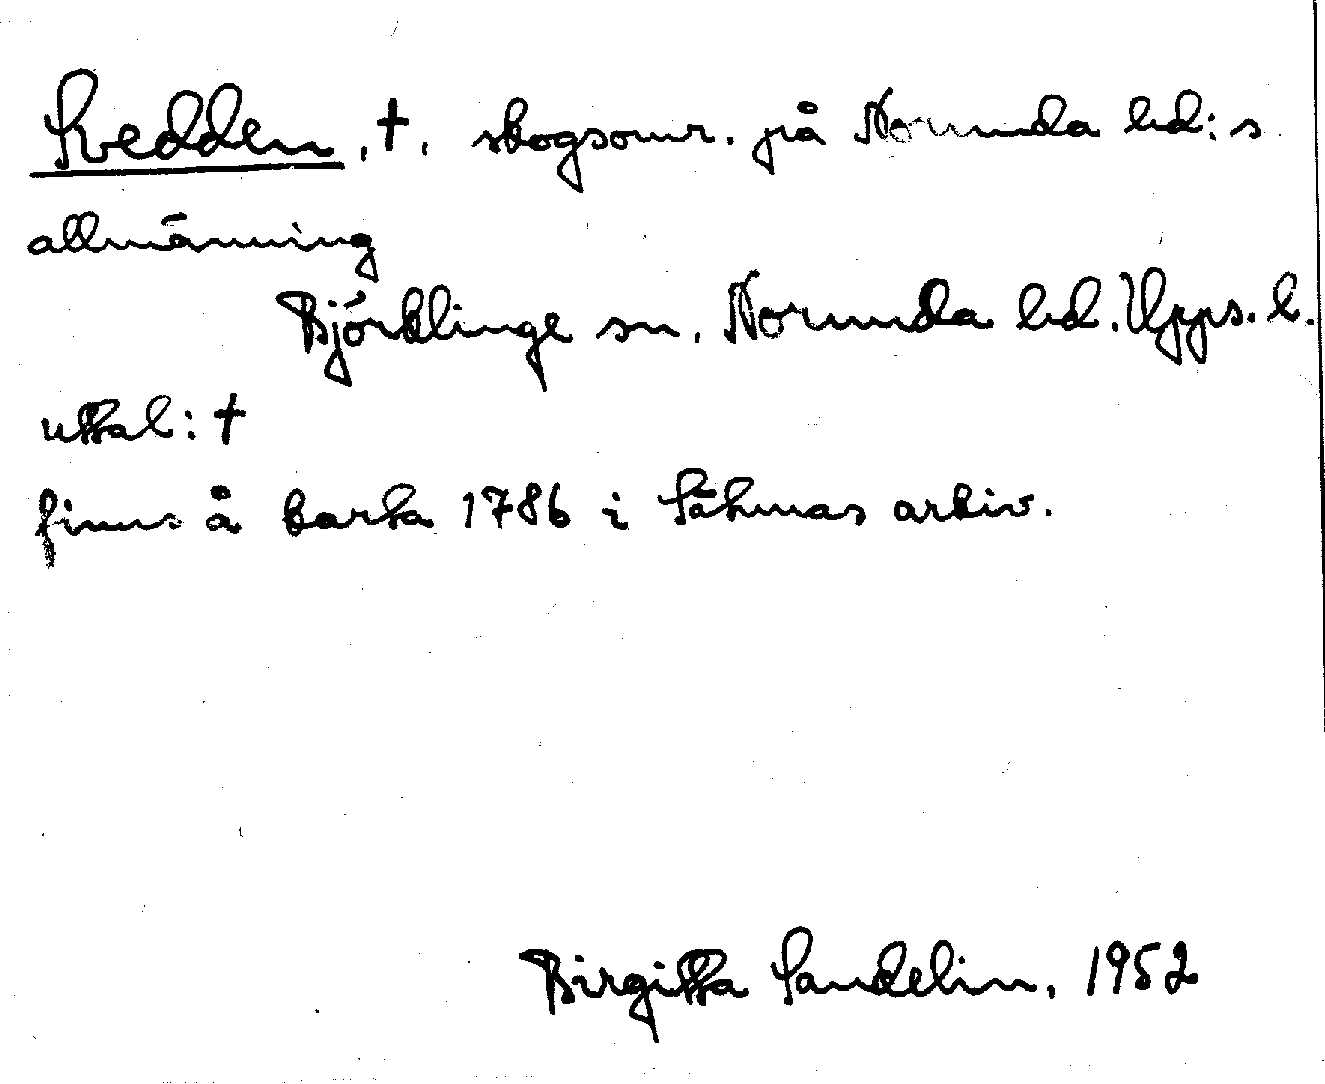 Svedden, †, skogsomr. på Norunda hd:s
allmänning
Björklinge sn, Norunda hd. Upps. l.
uttal: †
finns å karta 1786 i Sähmas arkiv.
Birgitta Sandelin, 1952